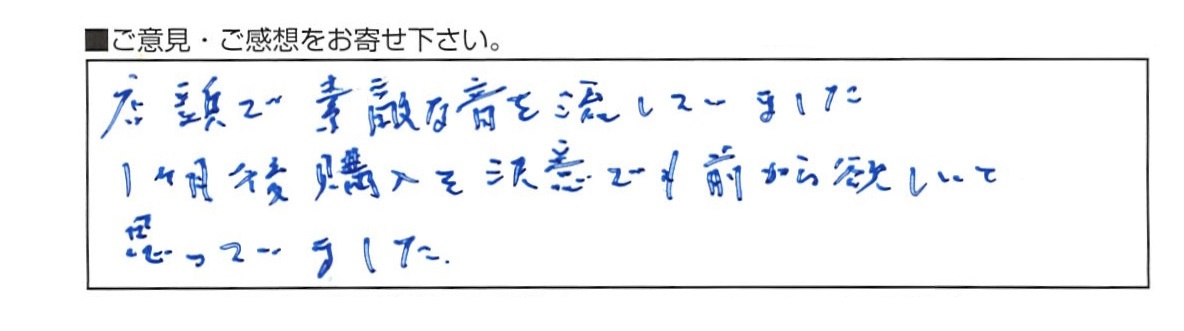 ■ご意見・ご感想をお寄せ下さい。
店頭で素敵な音を流していました
1ヶ月後購入を決意でも前から欲しいと
思っていました.